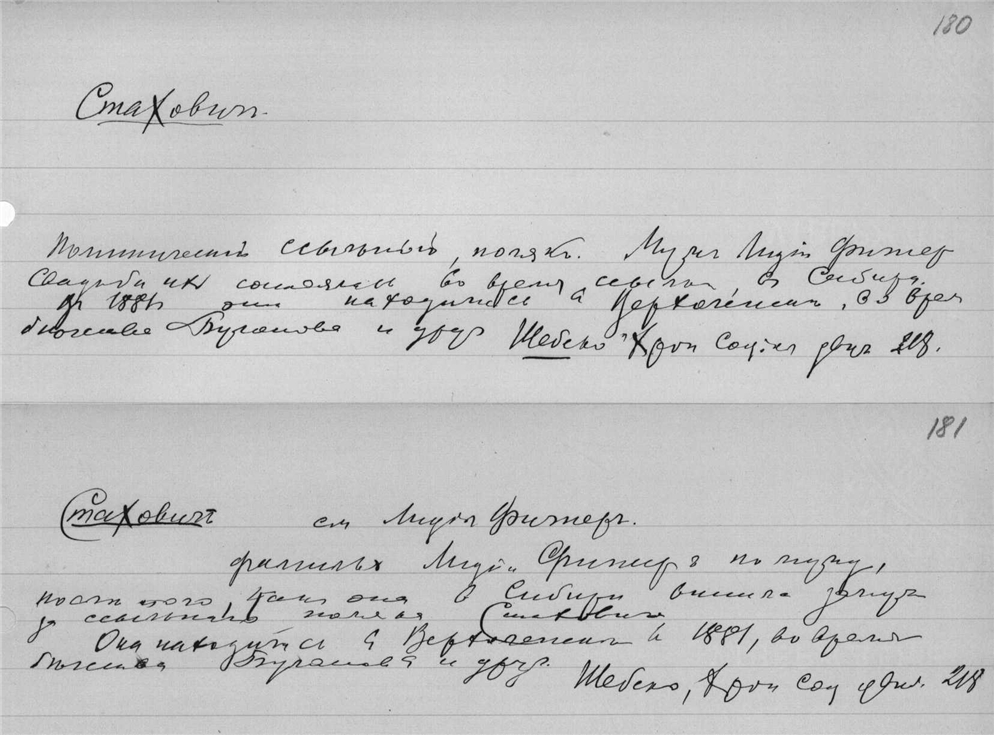 180
Стахович.
Политический ссыльный, поляк. Муж Лидіи Фигнер
Свадьба их состоялась во время ссылки в Сибири.
В 1881 они находились в Верхоленске, во время
бегства Буланова и друг Шебеко "Хрон соціал движ 218.
181
Стахович см Лидія Фигнер.
фамилія Лидіи Фигнер по мужу,
после того, как она в Сибири вышла замуж
за ссыльного поляка Стаховича
Она находилась в Верхоленске в 1881, во время
бегства Буланова и друг.
Шебеко, Хрон соц движ. 218